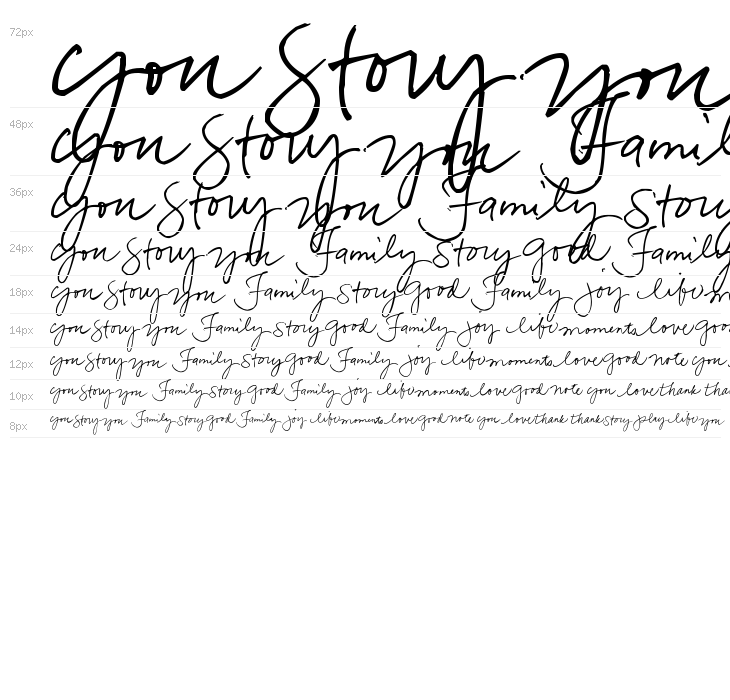 72px you Story you
48px you Story you Famil
36px you Story you Family Story
24px you Story you Family Story good Family
18px you Story you Family Story good Family joy life m
14px you Story you Family Story good Family joy life moments love good
12px you Story you Family Story good Family joy life moments love good note you
10px you Story you Family Story good Family joy life moments love good note you love thank tha
8px you Story you Family Story good Family joy life moments love good note you love thank thank Story play life you